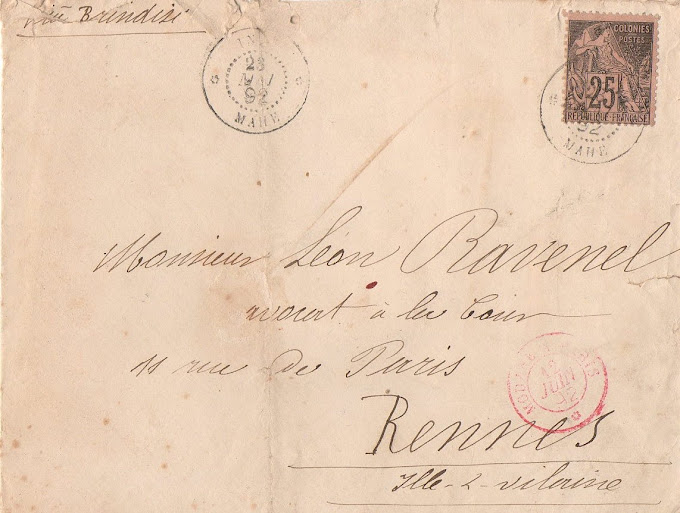 viâ Brindisi
23
MAI
92
MAHE
COLONIES
POSTES
25
RÉPUBLIQUE FRANÇAISE
92
MAHE
Monsieur Léon Ravenel
avocat à la Cour
11 rue de Paris
JUIN
92
Rennes
Ille-&-Vilaine